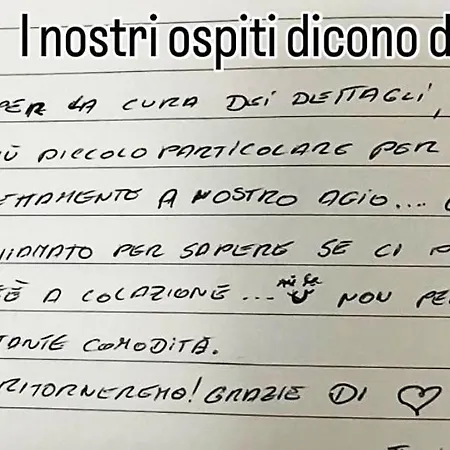 I nostri ospiti dicono d
PER LA CURA DEI DETTAGLI,
Ù PICCOLO PARTICOLARE PER
TAMENTE A NOSTRO AGIO...
IAMATO PER SAPERE SE CI
È A COLAZIONE... NON PE
TANTE COMODITÀ.
RITORNEREMO! GRAZIE DI ♡